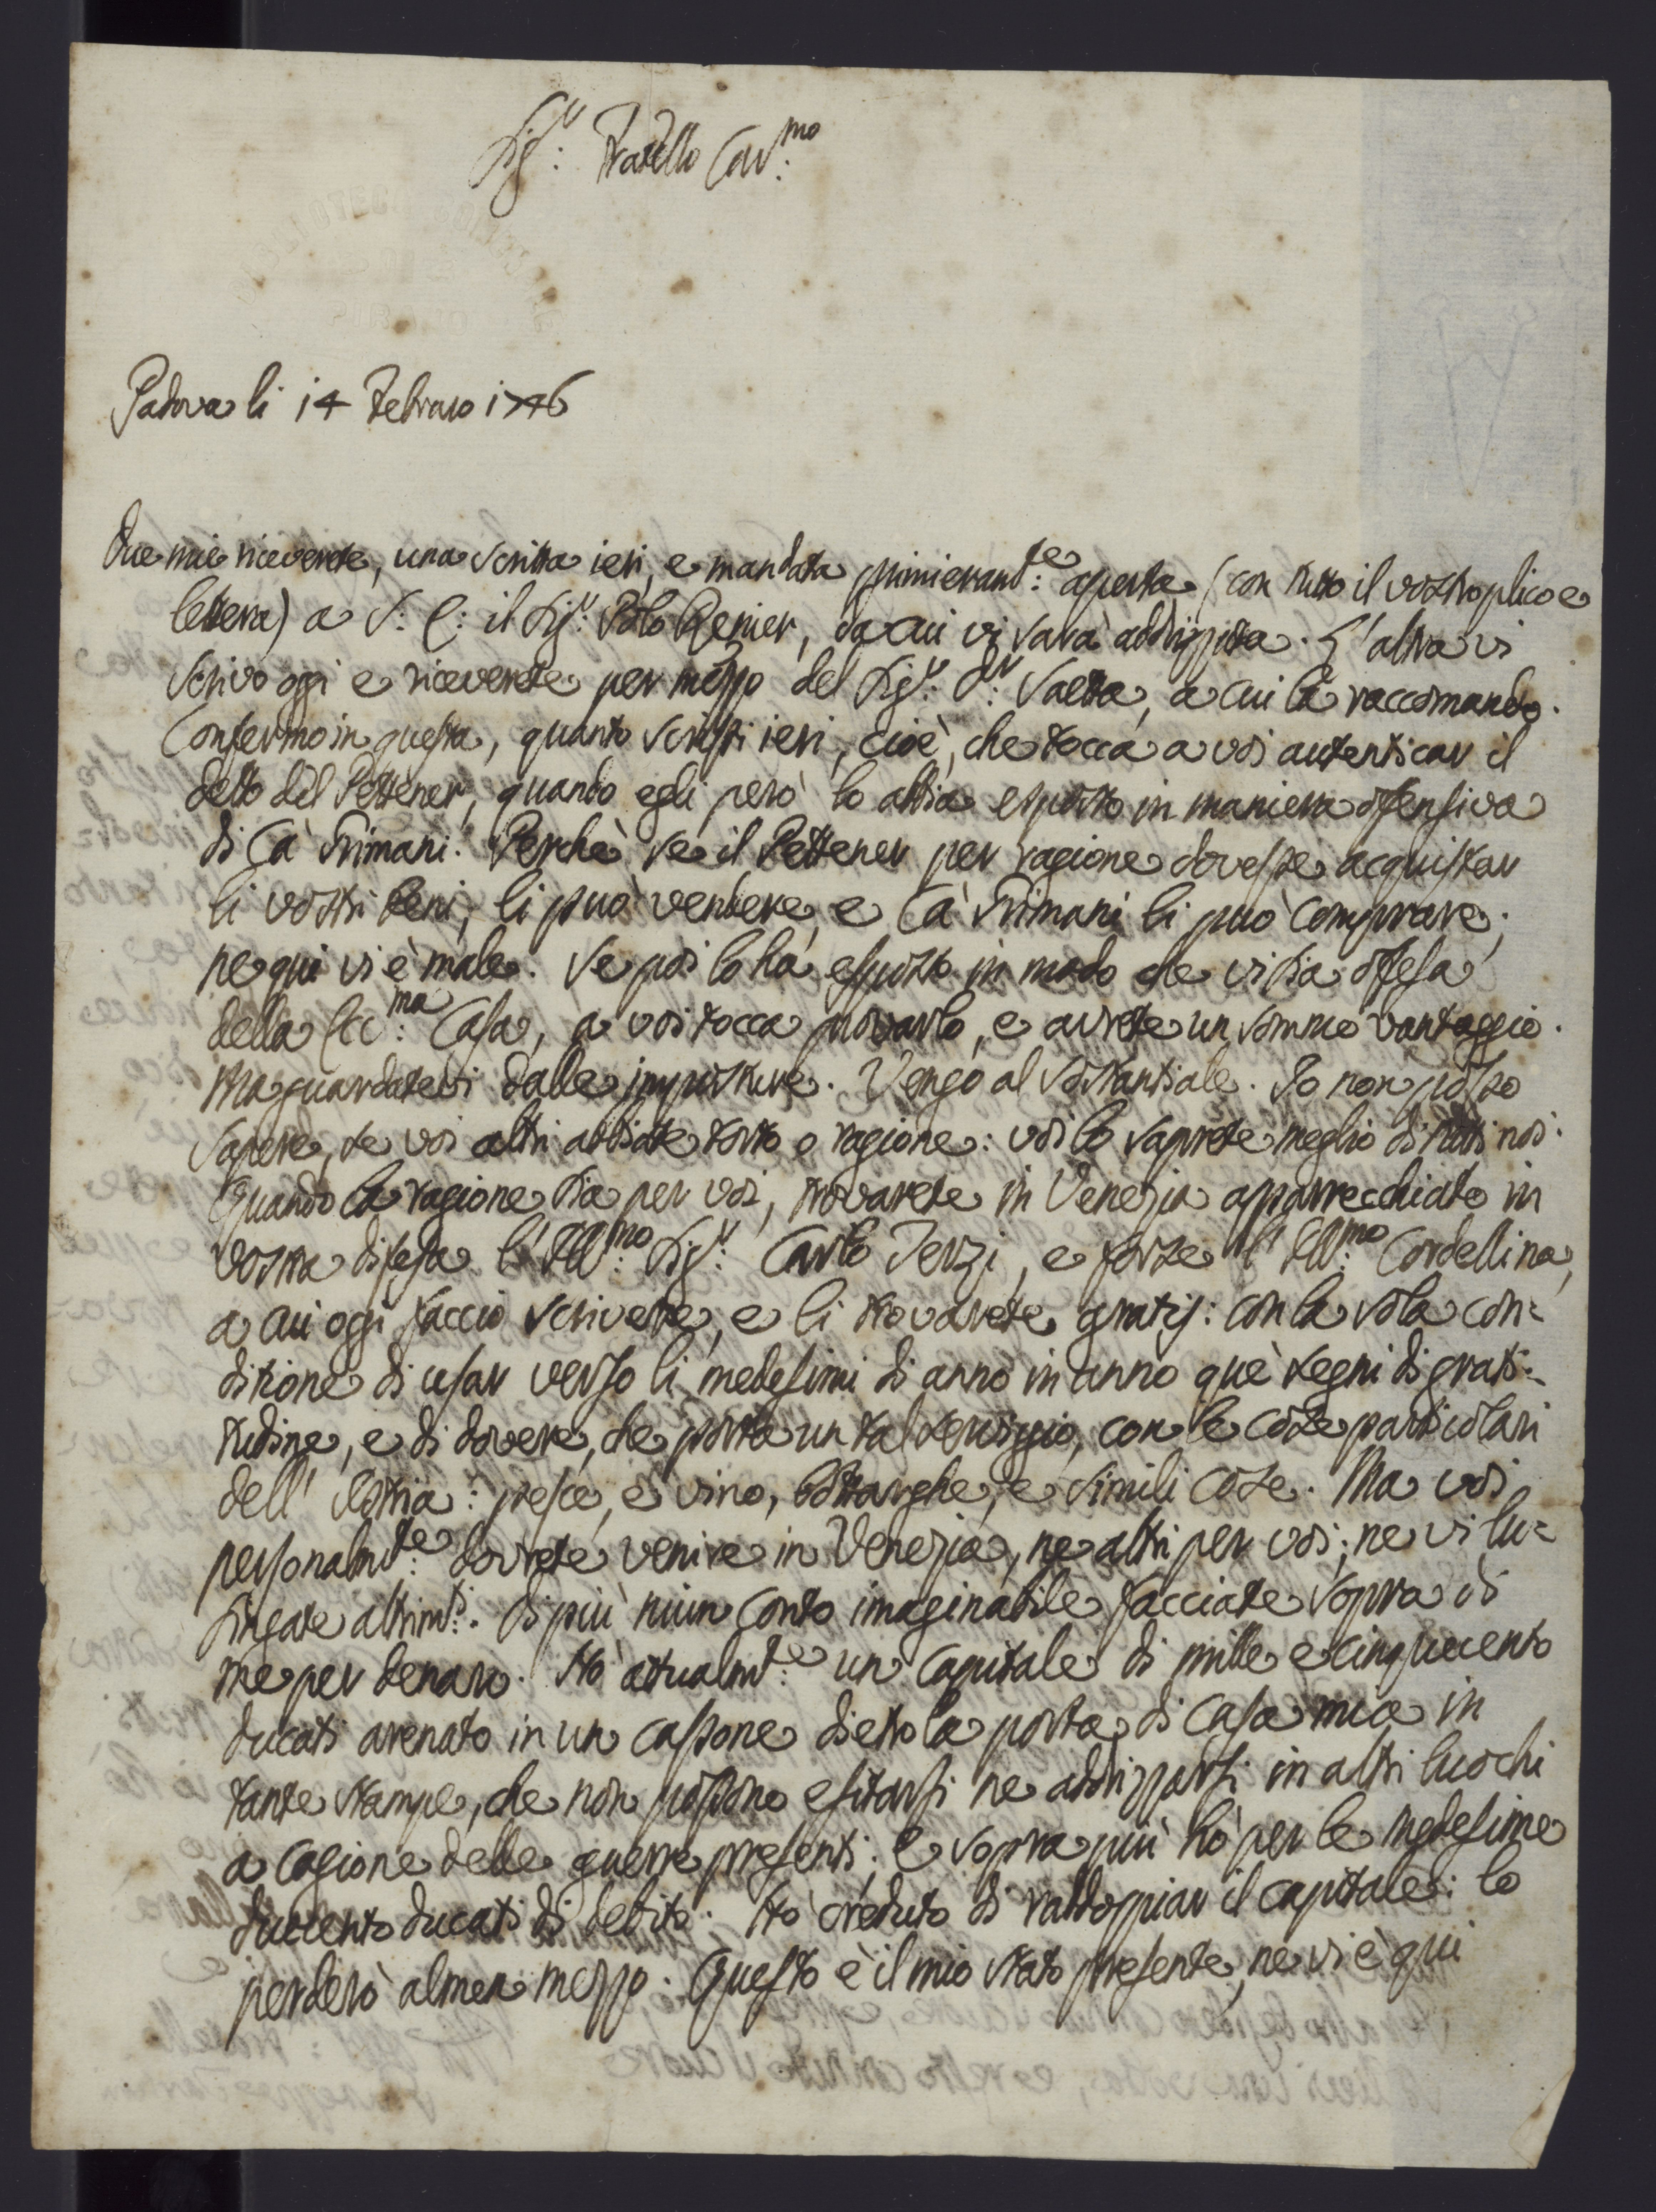 Sig.r: Fratello Car.mo:
Padova li 14 Febraro 1746
Due mie riceverete, una scritta ieri, e mandata primieramte: aperta (con tutto il vostro plico e
lettera) a S: E: il Sig.r: Polo Renier, da cui vi sarà addrizzata. L'altra vi
scrivo oggi e riceverete per mezzo del Sig.r: D.r: Saetta, a cui la raccomando.
Confermo in questa, quanto scrissi ieri, cioè, che tocca a voi autenticar il
detto del Pettener, quando egli però lo abbia esposto in maniera offensiva
di Cà Grimani. Perchè se il Pettener per ragione dovesse acquistar
li vostri beni, li può vendere, e Cà Grimani li può comprare;
ne qui vi è male. Se poi lo hà esposto in modo che vi sia offesa
della Ecc:ma Casa, a voi tocca provarlo, e avrete un sommo vantaggio.
Ma guardatevi dalle imposture. Vengo al sostantiale. Io non posso
sapere, se voi altri abbiate torto o ragione: voi lo saprete meglio di tutti noi.
Quando la ragione sia per voi, trovarete in Venezia apparecchiato in
vostra difesa l'Ill:mo Sig.r: Carlo Terzi, e forse l'Ill:mo Cordellina,
a cui oggi faccio scrivere, e li trovarete gratis: con la sola con=
ditione di usar verso li medesimi di anno in anno que' segni di grati=
tudine, e di dovere, che porta un tal servizio, con le cose particolari
dell' Istria: pesce, e vino, bottarghe, e simili cose. Ma voi
personalmte: dovrete venire in Venezia, ne altri per voi; ne vi lu=
singate altrimti:. Di più niun conto imaginabile facciate sopra di
me per denaro. Hò attualmte: un capitale di mille e cinquecento
ducati arenato in un cassone dietro la porta di casa mia in
tante stampe, che non possono esitarsi ne addrizzarsi in altri luochi
a cagione delle guerre presenti; e sopra più hò per le medesime
duecento ducati di debito. Hò creduto di raddoppiar il capitale: lo
perderò almen mezzo. Questo è il mio stato presente, ne vi è qui